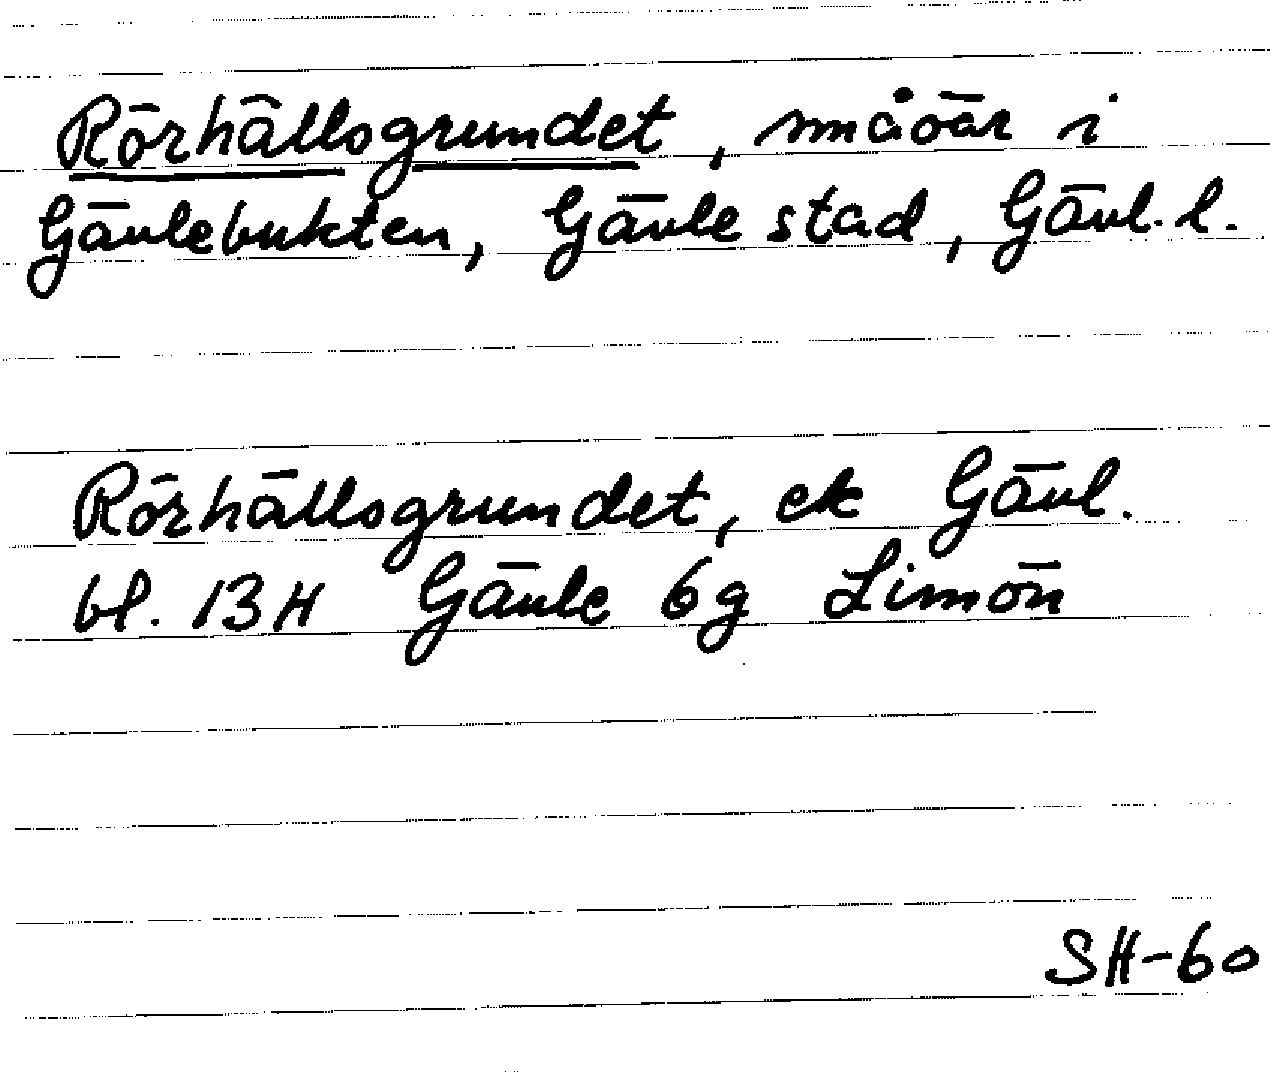 Rörhällsgrundet, småöar i
Gävlebukten, Gävle stad, Gävl. l.
Rörhällsgrundet, ek Gävl.
bl. 13H Gävle 6g Limön
SH-60